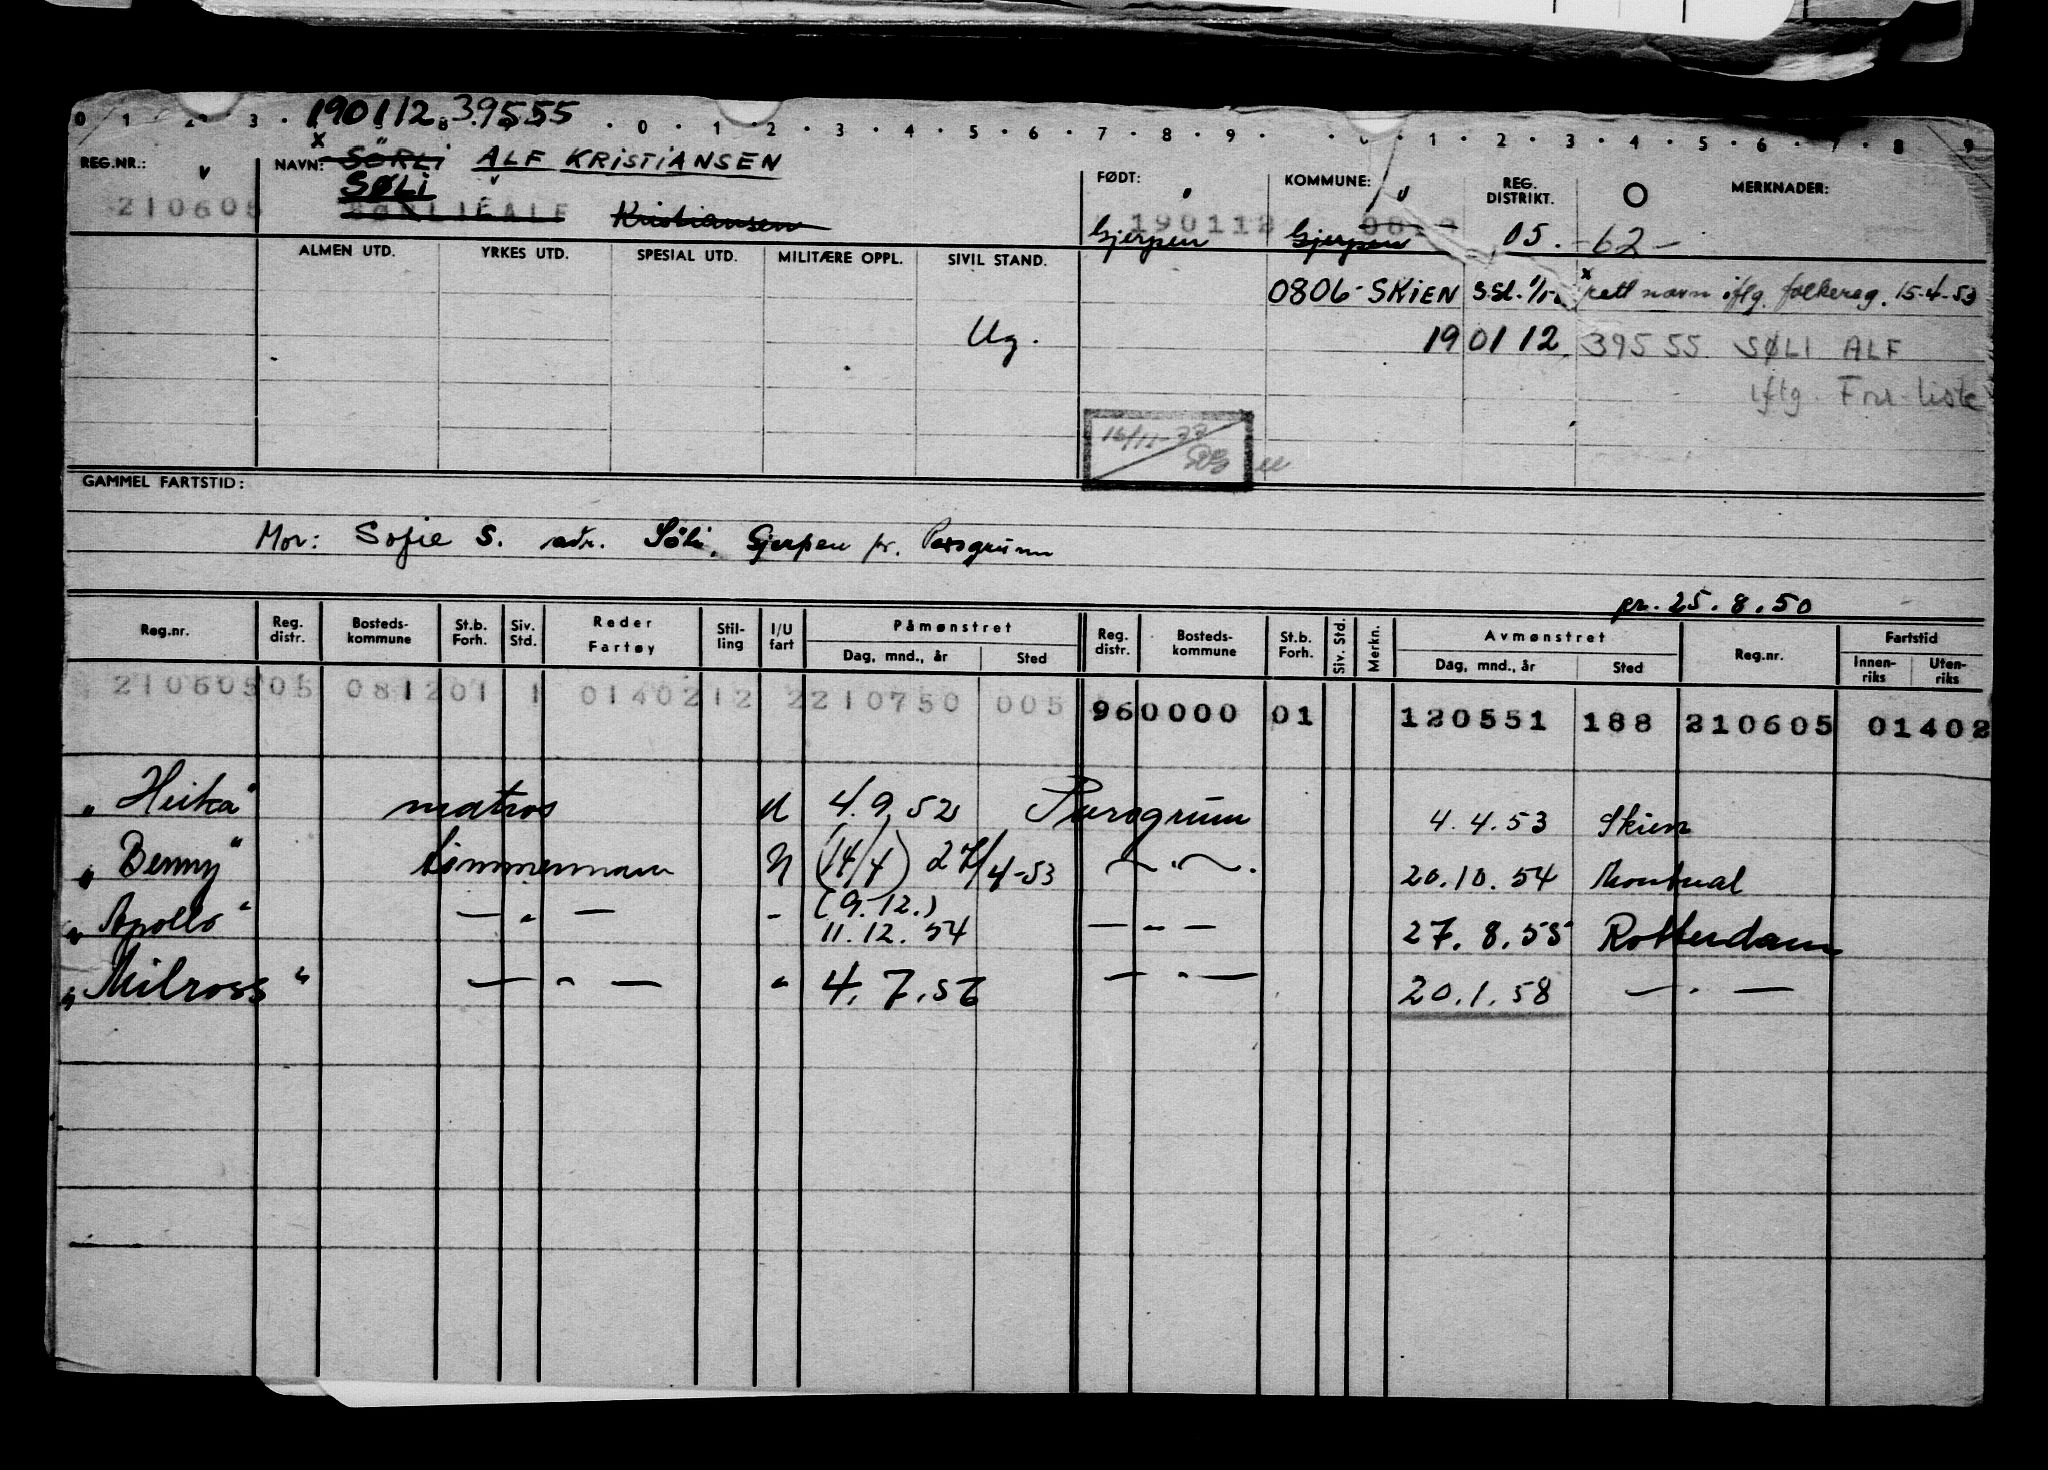 190112 39555
0 1 2 3 0 1 2 3 4 5 6 7 8 9 0 1 2 3 4 5 6 7 8 9
REG.NR.: NAVN: SÖRLI ALF KRISTIANSEN
SØLI
FØDT: KOMMUNE: REG. DISTRIKT. O MERKNADER:
210605 SØRLIE ALF Kristiansen 190112 Gjerpen Gjerpen 05. -62-
ALMEN UTD. YRKES UTD. SPESIAL UTD. MILITÆRE OPPL. SIVIL STAND.
0806-SKIEN x rett navn iflg. folkereg. 15-4-53
Ug. 190112 39555 SØLI ALF
iflg.
GAMMEL FARTSTID:
Mor: Sofie S. adr. Söli, Gjerpen pr. Porsgrunn
pr. 25.8.50
Reg.nr. Reg. distr. Bosteds-kommune St.b. Forh. Siv. Std. Reder Fartøy Stil-ling I/U fart Påmønstret Dag, mnd., år Sted Reg. distr. Bosteds-kommune St.b. Forh. Siv. Std. Merkn. Avmønstret Dag, mnd., år Sted Reg.nr. Fartstid Innen-riks Uten-riks
210605 05 0812 01 1 01402 12 2 210750 005 96 0000 01 120551 188 210605 01402
"Heika" matros U 4.9.52 Porsgrunn 4.4.53 Skien
"Benny" tømmermann U (14/4) 27/4-53 — " — 20.10.54 Montreal
"Apollo" — " — " (9.12.) 11.12.54 — " — 27.8.55 Rotterdam
"Milross" — " — " 4.7.56 — " — 20.1.58 — " —